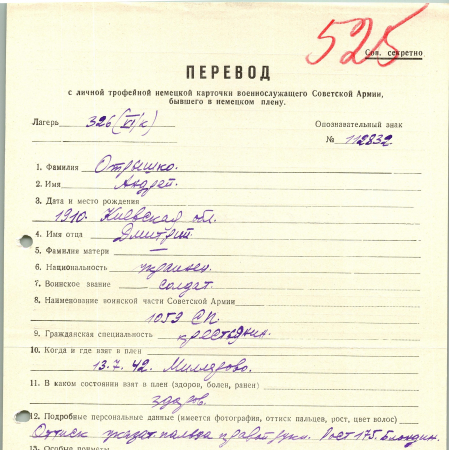 525
Сов. секретно
ПЕРЕВОД
с личной трофейной немецкой карточки военнослужащего Советской Армии,
бывшего в немецком плену.
Лагерь 326 (VI/к) Опознавательный знак
№ 112832.
1. Фамилия Отрышко.
2. Имя Андрей.
3. Дата и место рождения
1910. Киевская обл.
4. Имя отца Дмитрий
5. Фамилия матери —
6. Национальность украинец.
7. Воинское звание солдат.
8. Наименование воинской части Советской Армии
1053 СП.
9. Гражданская специальность крестьянин.
10. Когда и где взят в плен
13.7.42. Миллерово.
11. В каком состоянии взят в плен (здоров, болен, ранен)
здоров.
12. Подробные персональные данные (имеется фотография, оттиск пальцев, рост, цвет волос)
Оттиск указат. пальца правой руки. Рост 175. Блондин.
13. Особые приметы